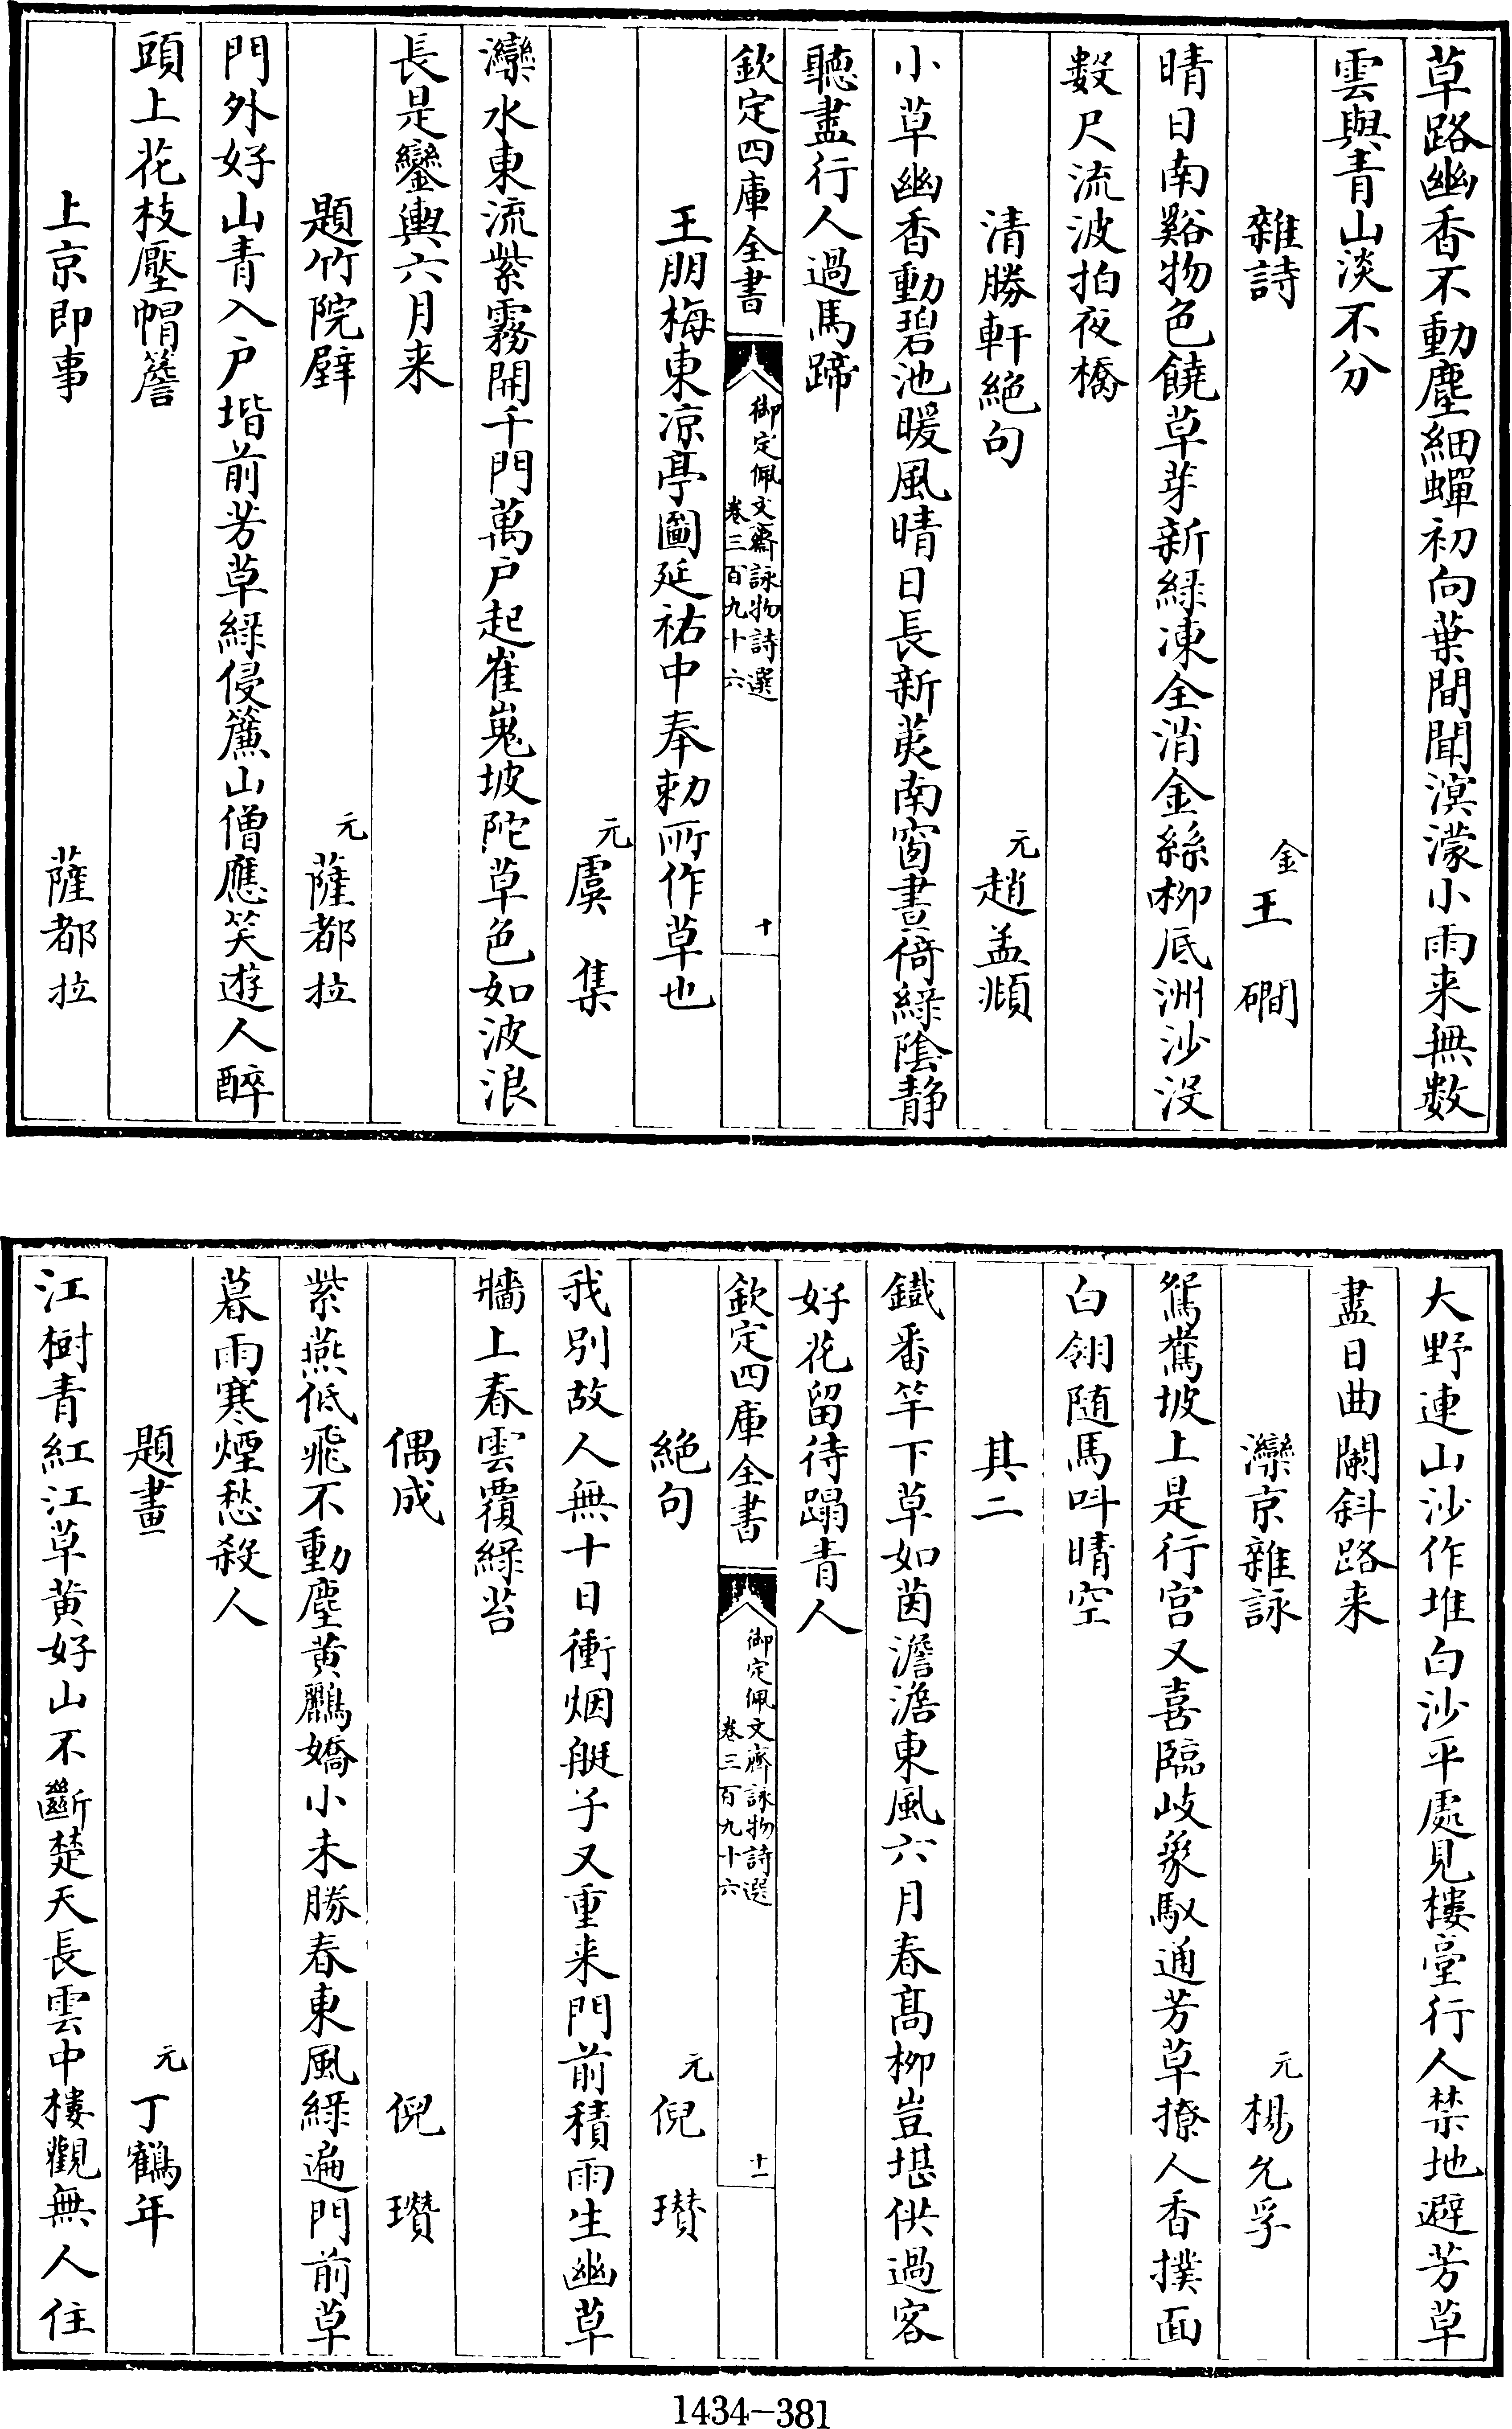 草路幽香不動塵細蟬初向葉間聞溟濛小雨来無數
雲與青山淡不分
雜詩
金王磵
晴日南谿物色饒草芽新緑凍全消金絲柳底洲沙沒
數尺流波拍夜橋
清勝軒絶句
元趙孟頫
小草幽香動碧池暖風晴日長新荑南窗晝倚緑陰静
聽盡行人過馬蹄
欽定四庫全書
御定佩文齋詠物詩選
卷三百九十六
十
王朋梅東凉亭圖延祐中奉勅所作草也
元虞集
灤水東流紫霧開千門萬户起崔嵬坡陀草色如波浪
長是鑾輿六月来
題竹院壁
元薩都拉
門外好山青入户堦前芳草緑侵簾山僧應笑遊人醉
頭上花枝壓帽簷
上京即事
薩都拉
大野連山沙作堆白沙平處見樓臺行人禁地避芳草
盡日曲闌斜路来
灤京雜詠
元楊允孚
鴛鴦坡上是行宫又喜臨岐象馭通芳草撩人香撲面
白翎随馬叫晴空
其二
鐵番竿下草如茵澹澹東風六月春髙柳豈堪供過客
好花留待蹋青人
欽定四庫全書
御定佩文齋詠物詩選
卷三百九十六
十一
絶句
元倪瓚
我別故人無十日衝烟艇子又重来門前積雨生幽草
牆上春雲覆緑苔
偶成
倪瓚
紫燕低飛不動塵黄鸝嬌小未勝春東風緑遍門前草
暮雨寒煙愁殺人
題畫
元丁鶴年
江樹青紅江草黄好山不斷楚天長雲中樓觀無人住
1434-381